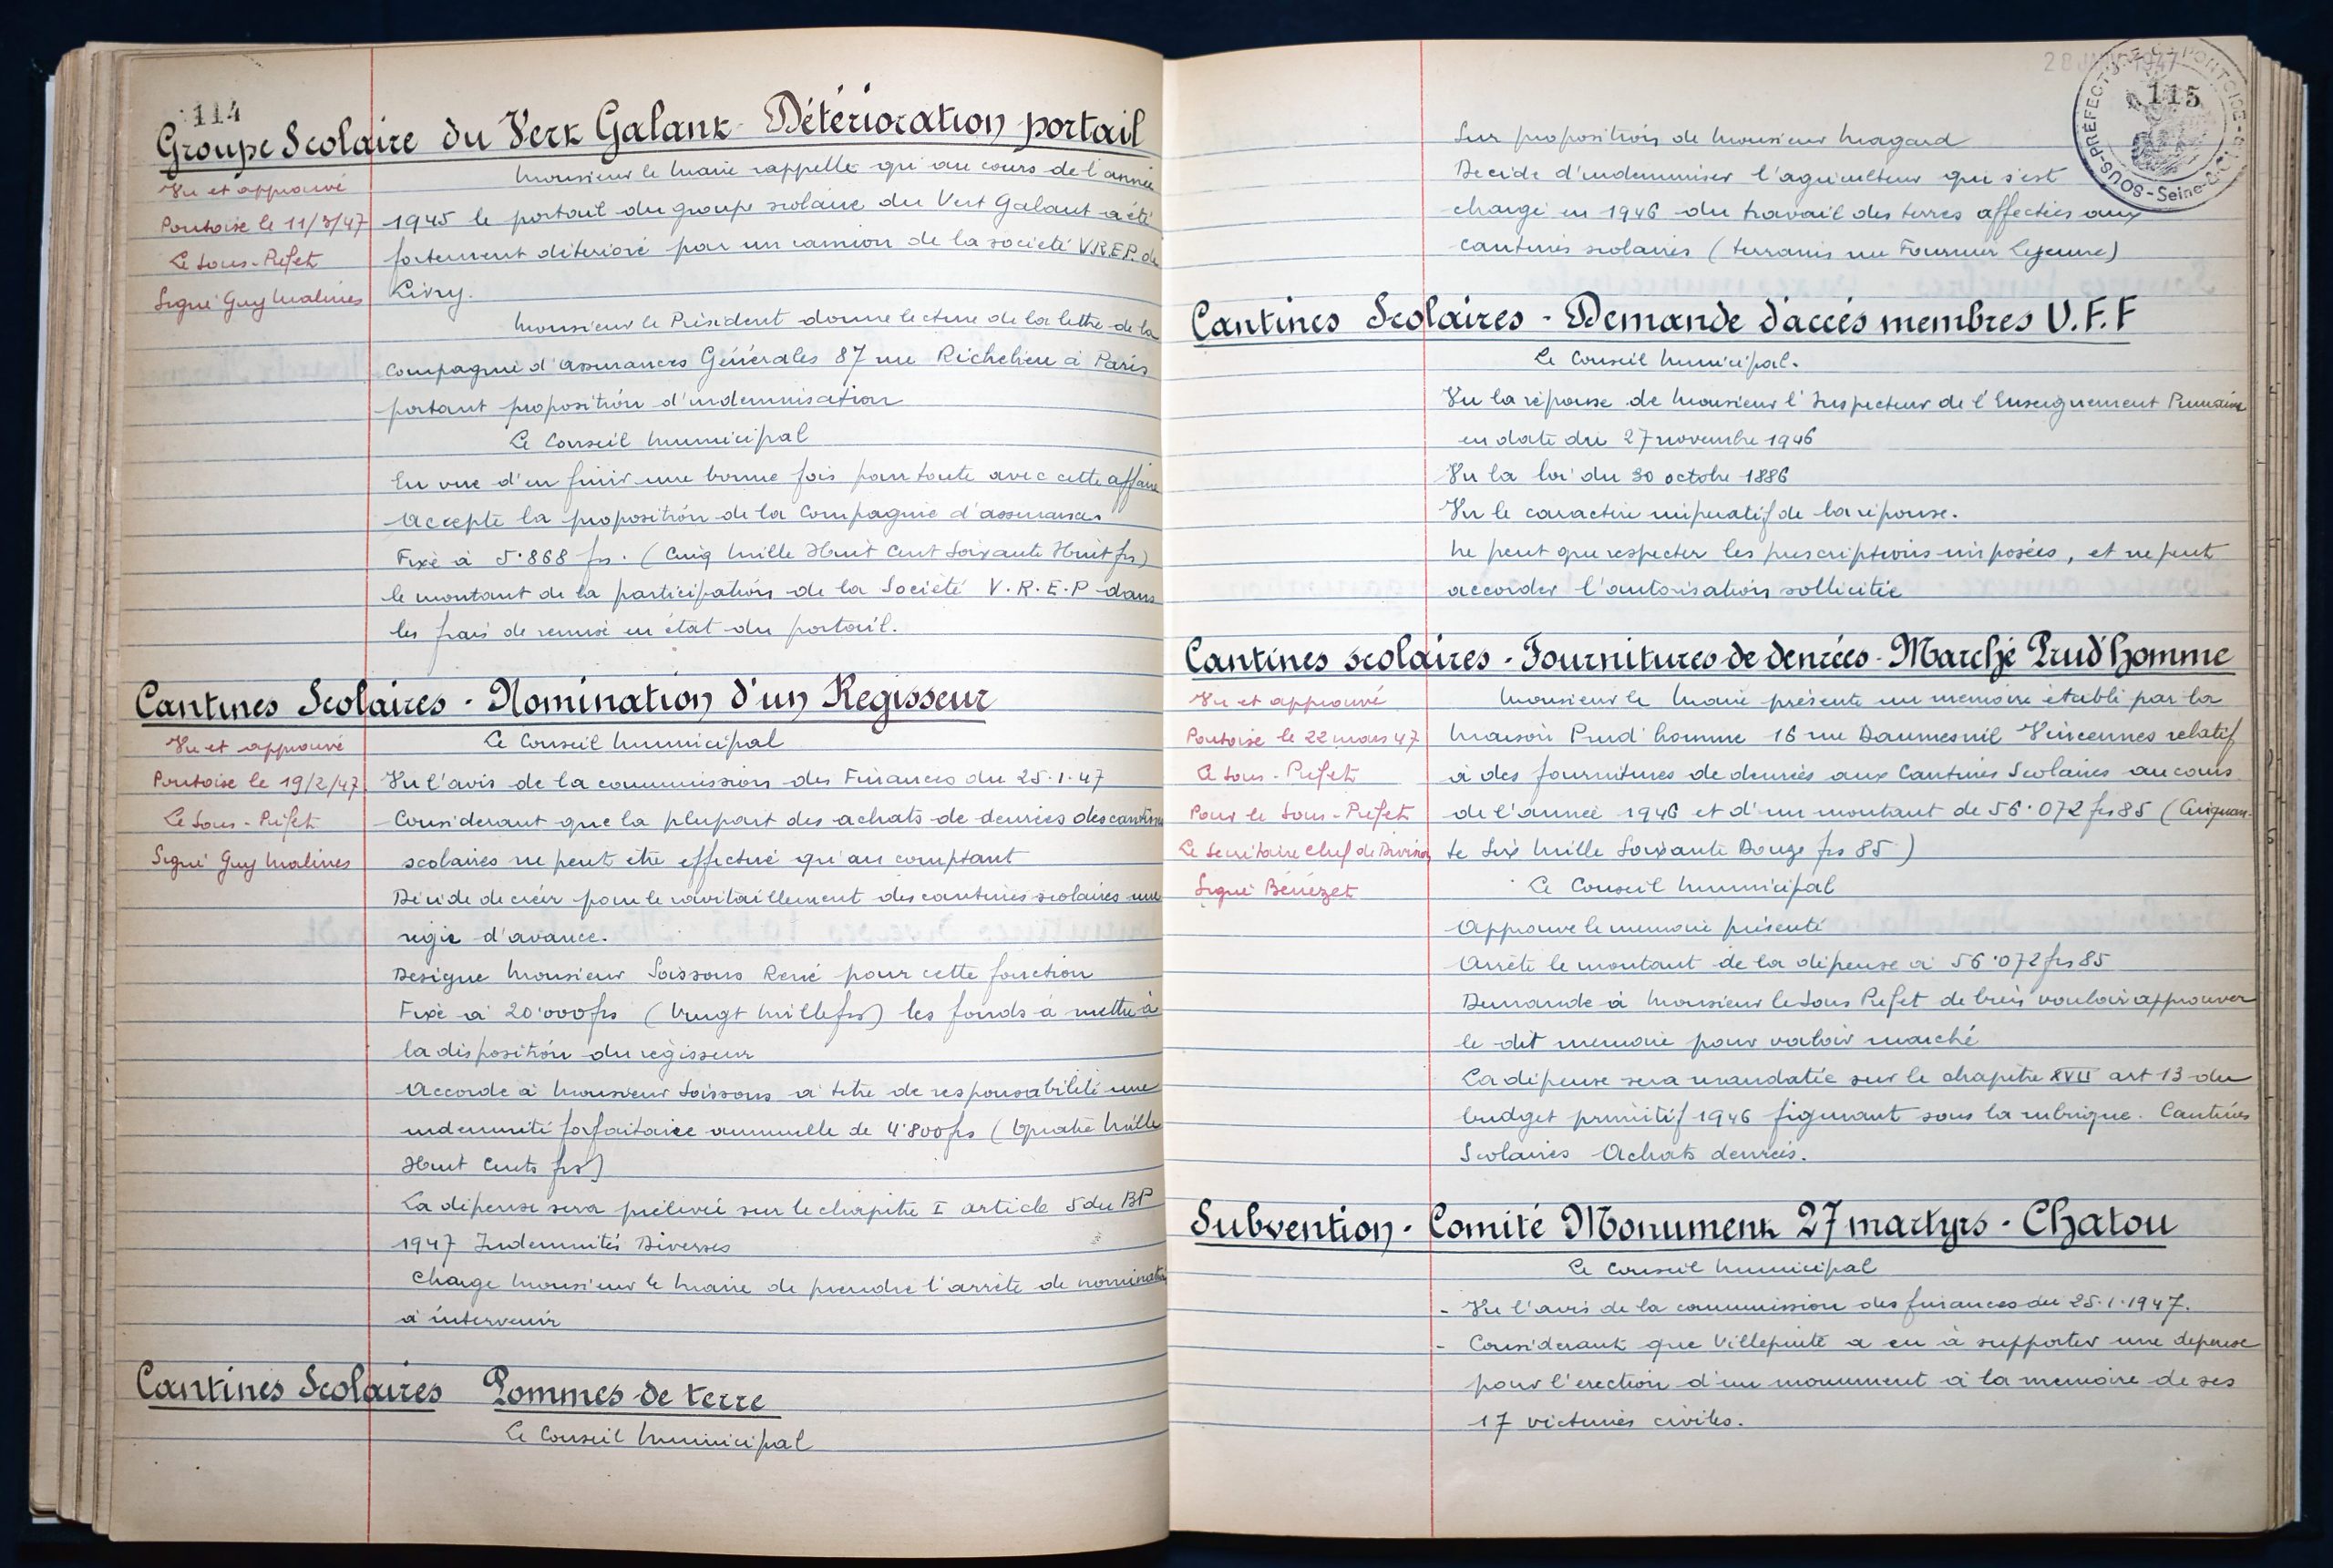 114
Groupe Scolaire du Vert Galant - Détérioration portail
Vu et approuvé
Pontoise le 11/3/47
Le Sous-Préfet
Signé Guy Malines
Monsieur le Maire rappelle qu'au cours de l'année
1945 le portail du groupe scolaire du Vert Galant a été
fortement détérioré par un camion de la société V.R.E.P. de
Livry.
Monsieur le Président donne lecture de la lettre de la
Compagnie d'assurances Générales 87 rue Richelieu à Paris
portant proposition d'indemnisation
Le Conseil Municipal
En vue d'en finir une bonne fois pour toute avec cette affaire
Accepte la proposition de la Compagnie d'assurances
Fixe à 5.868 frs. (Cinq Mille Huit Cent Soixante Huit frs)
le montant de la participation de la Société V.R.E.P dans
les frais de remise en état du portail.
Cantines Scolaires - Nomination d'un Regisseur
Vu et approuvé
Pontoise le 19/2/47
Le Sous-Préfet
Signé Guy Malines
Le Conseil Municipal
Vu l'avis de la commission des Finances du 25.1.47
Considerant que la plupart des achats de denrées des cantines
scolaires ne peut être effectué qu'au comptant
Décide de créer pour le ravitaillement des cantines scolaires une
régie d'avance.
Désigne Monsieur Soissons René pour cette fonction
Fixe à 20.000 frs (Vingt Mille frs) les fonds à mettre à
la disposition du régisseur
Accorde à Monsieur Soissons à titre de responsabilité une
indemnité forfaitaire annuelle de 4.800 frs (Quatre Mille
Huit Cents frs)
La dépense sera prélevée sur le chapitre I article 5 du BP
1947 Indemnités Diverses
Charge Monsieur le Maire de prendre l'arrêté de nomination
à intervenir
Cantines Scolaires Pommes de terre
Le Conseil Municipal
28 JANV 1947
115
SOUS-PRÉFECTURE DE PONTOISE
Seine-&-Oise
Sur proposition de Monsieur Magard
Décide d'indemniser l'agriculteur qui s'est
chargé en 1946 du travail des terres affectées aux
cantines scolaires (terrains rue Fournier Lejeune)
Cantines Scolaires - Demande d'accés membres U.F.F
Le Conseil Municipal.
Vu la réponse de Monsieur l'Inspecteur de l'Enseignement Primaire
en date du 27 novembre 1946
Vu la loi du 30 octobre 1886
Vu le caractère impératif de la réponse.
Ne peut que respecter les prescriptions imposées, et ne peut
accorder l'autorisation sollicitée
Cantines scolaires - Fournitures de denrées - Marché Prud'homme
Vu et approuvé
Pontoise le 22 mars 47
Le Sous-Préfet
Pour le Sous-Préfet
Le Secrétaire Chef de Division
Signé Bénézet
Monsieur le Maire présente un mémoire établi par la
Maison Prud'homme 16 rue Daumesnil Vincennes relatif
à des fournitures de denrées aux Cantines Scolaires au cours
de l'année 1946 et d'un montant de 56.072 frs 85 (Cinquan-
te Six Mille Soixante Douze frs 85)
Le Conseil Municipal
Approuve le mémoire présenté
Arrête le montant de la dépense à 56.072 frs 85
Demande à Monsieur le Sous Préfet de bien vouloir approuver
le dit mémoire pour valoir marché
La dépense sera mandatée sur le chapitre XVII art 13 du
budget primitif 1946 figurant sous la rubrique. Cantines
Scolaires Achats denrées.
Subvention - Comité Monument 27 martyrs - Chatou
Le Conseil Municipal
- Vu l'avis de la commission des finances du 25.1.1947.
- Considerant que Villepinte a eu à supporter une dépense
pour l'érection d'un monument à la mémoire de ses
17 victimes civiles.